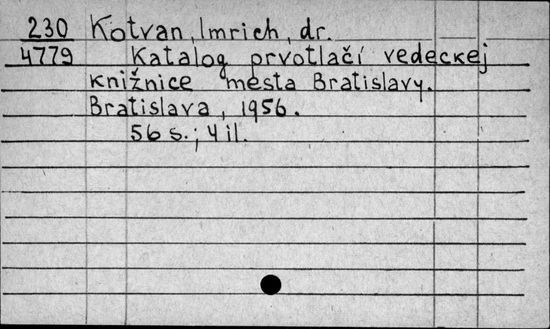 230 Kotvan, Imrich, dr.
4779 Katalog prvotlačí vedeckej
knižnice mesta Bratislavy.
Bratislava, 1956.
56 s.; 4 il.